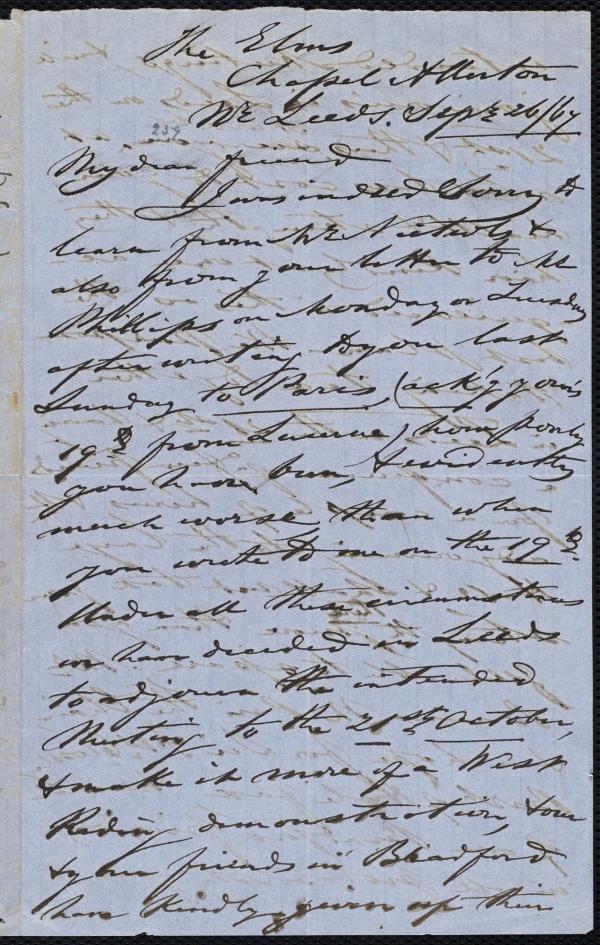 The Elms
Chapel Allerton
Nr. Leeds. Sepr. 26/67
259
My dear friend
I was indeed sorry to
learn from Mr Nichols &
also from your letter to Mr
Phillips on Monday or Tuesday
after writing to you last
Sunday to Paris, (ack'g yours
19th from Lucerne) how poorly
you have been, & evidently
much worse than when
you wrote to me on the 19th.
Under all these circumstances
we have decided in Leeds
to adjourn the intended
Meeting to the 21st October,
& make it more of a West
Riding demonstration, & our
& your friends in Bradford
have kindly given up their